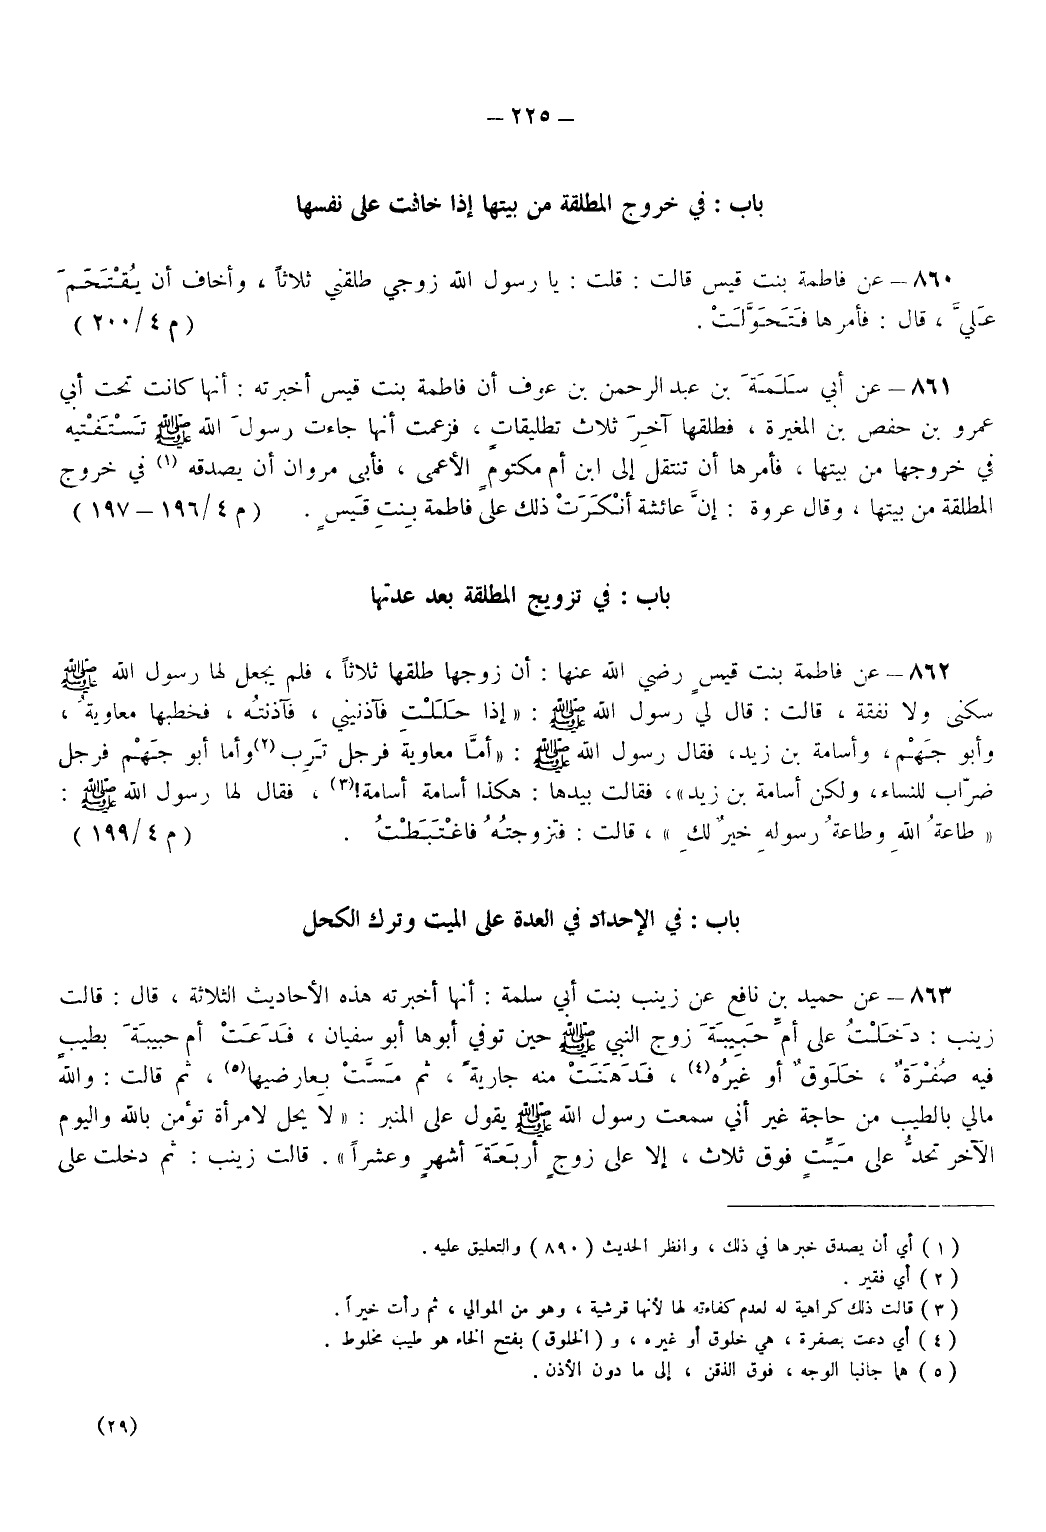 – ٢٢٥ –
باب : في خروج المطلقة من بيتها إذا خافت على نفسها
٨٦٠ – عن فاطمة بنت قيس قالت : قلت : يا رسول الله زوجي طلقني ثلاثاً ، وأخاف أن يُقْتَحَمَ
عَلَيَّ ، قال : فأمرها فَتَحَوَّلَتْ . ( م ٤/ ٢٠٠ )
٨٦١ – عن أبي سَلَمَةَ بن عبد الرحمن بن عوف أن فاطمة بنت قيس أخبرته : أنها كانت تحت أبي
عمرو بن حفص بن المغيرة ، فطلقها آخِرَ ثلاث تطليقات ، فزعمت أنها جاءت رسولَ الله ﷺ تَسْتَفْتيه
في خروجها من بيتها ، فأمرها أن تنتقل إلى ابن أم مكتومٍ الأعمى ، فأبى مروان أن يصدقه (١) في خروج
المطلقة من بيتها ، وقال عروة : إنَّ عائشة أنْكَرَتْ ذلك على فاطمة بِنتِ قَيسٍ . ( م ٤/ ١٩٦ – ١٩٧ )
باب : في تزويج المطلقة بعد عدتها
٨٦٢ – عن فاطمة بنت قيسٍ رضي الله عنها : أن زوجها طلقها ثلاثاً ، فلم يجعل لها رسول الله ﷺ
سكنى ولا نفقة ، قالت : قال لي رسول الله ﷺ : « إذا حَلَلْتِ فآذنيني ، فآذنتُه ، فخطبها معاويةُ ،
وأبو جَهْم، وأسامة بن زيد، فقال رسول الله ﷺ : «أمَّا معاوية فرجل تَرِب(٢) وأما أبو جَهْم فرجل
ضرّاب للنساء، ولكن أسامة بن زيد»، فقالت بيدها : هكذا أسامة أسامة!(٣) ، فقال لها رسول الله ﷺ :
« طاعةُ اللهِ وطاعةُ رسولهِ خيرٌ لكِ » ، قالت : فتزوجتُهُ فاغْتَبَطْتُ . ( م ٤/ ١٩٩ )
باب : في الإحداد في العدة على الميت وترك الكحل
٨٦٣ – عن حميد بن نافع عن زينب بنت أبي سلمة : أنها أخبرته هذه الأحاديث الثلاثة ، قال : قالت
زينب : دَخَلْتُ على أمِّ حَبِيبَةَ زوج النبي ﷺ حين توفي أبوها أبو سفيان ، فَدَعَتْ أم حبيبَةَ بطيبٍ
فيه صُفْرَةٌ ، خَلوقٌ أو غيرُه(٤) ، فَدَهَنَتْ منه جاريةً ، ثم مَسَّتْ بعارضيها(٥) ، ثم قالت : والله
مالي بالطيب من حاجة غير أني سمعت رسول الله ﷺ يقول على المنبر : « لا يحل لامرأة تؤمن بالله واليوم
الآخر تحدُّ على مَيِّتٍ فوق ثلاث ، إلا على زوجٍ أربعَةَ أشهرٍ وعشراً» . قالت زينب : ثم دخلت على
( ١ ) أي أن يصدق خبرها في ذلك ، وانظر الحديث ( ٨٩٠ ) والتعليق عليه .
( ٢ ) أي فقير .
( ٣ ) قالت ذلك كراهية له لعدم كفاءته لها لأنها قرشية ، وهو من الموالي ، ثم رأت خيراً .
( ٤ ) أي دعت بصفرة ، هي خلوق أو غيره ، و ( الخلوق ) بفتح الخاء هو طيب مخلوط .
( ٥ ) هما جانبا الوجه ، فوق الذقن ، إلى ما دون الأذن .
(٢٩)